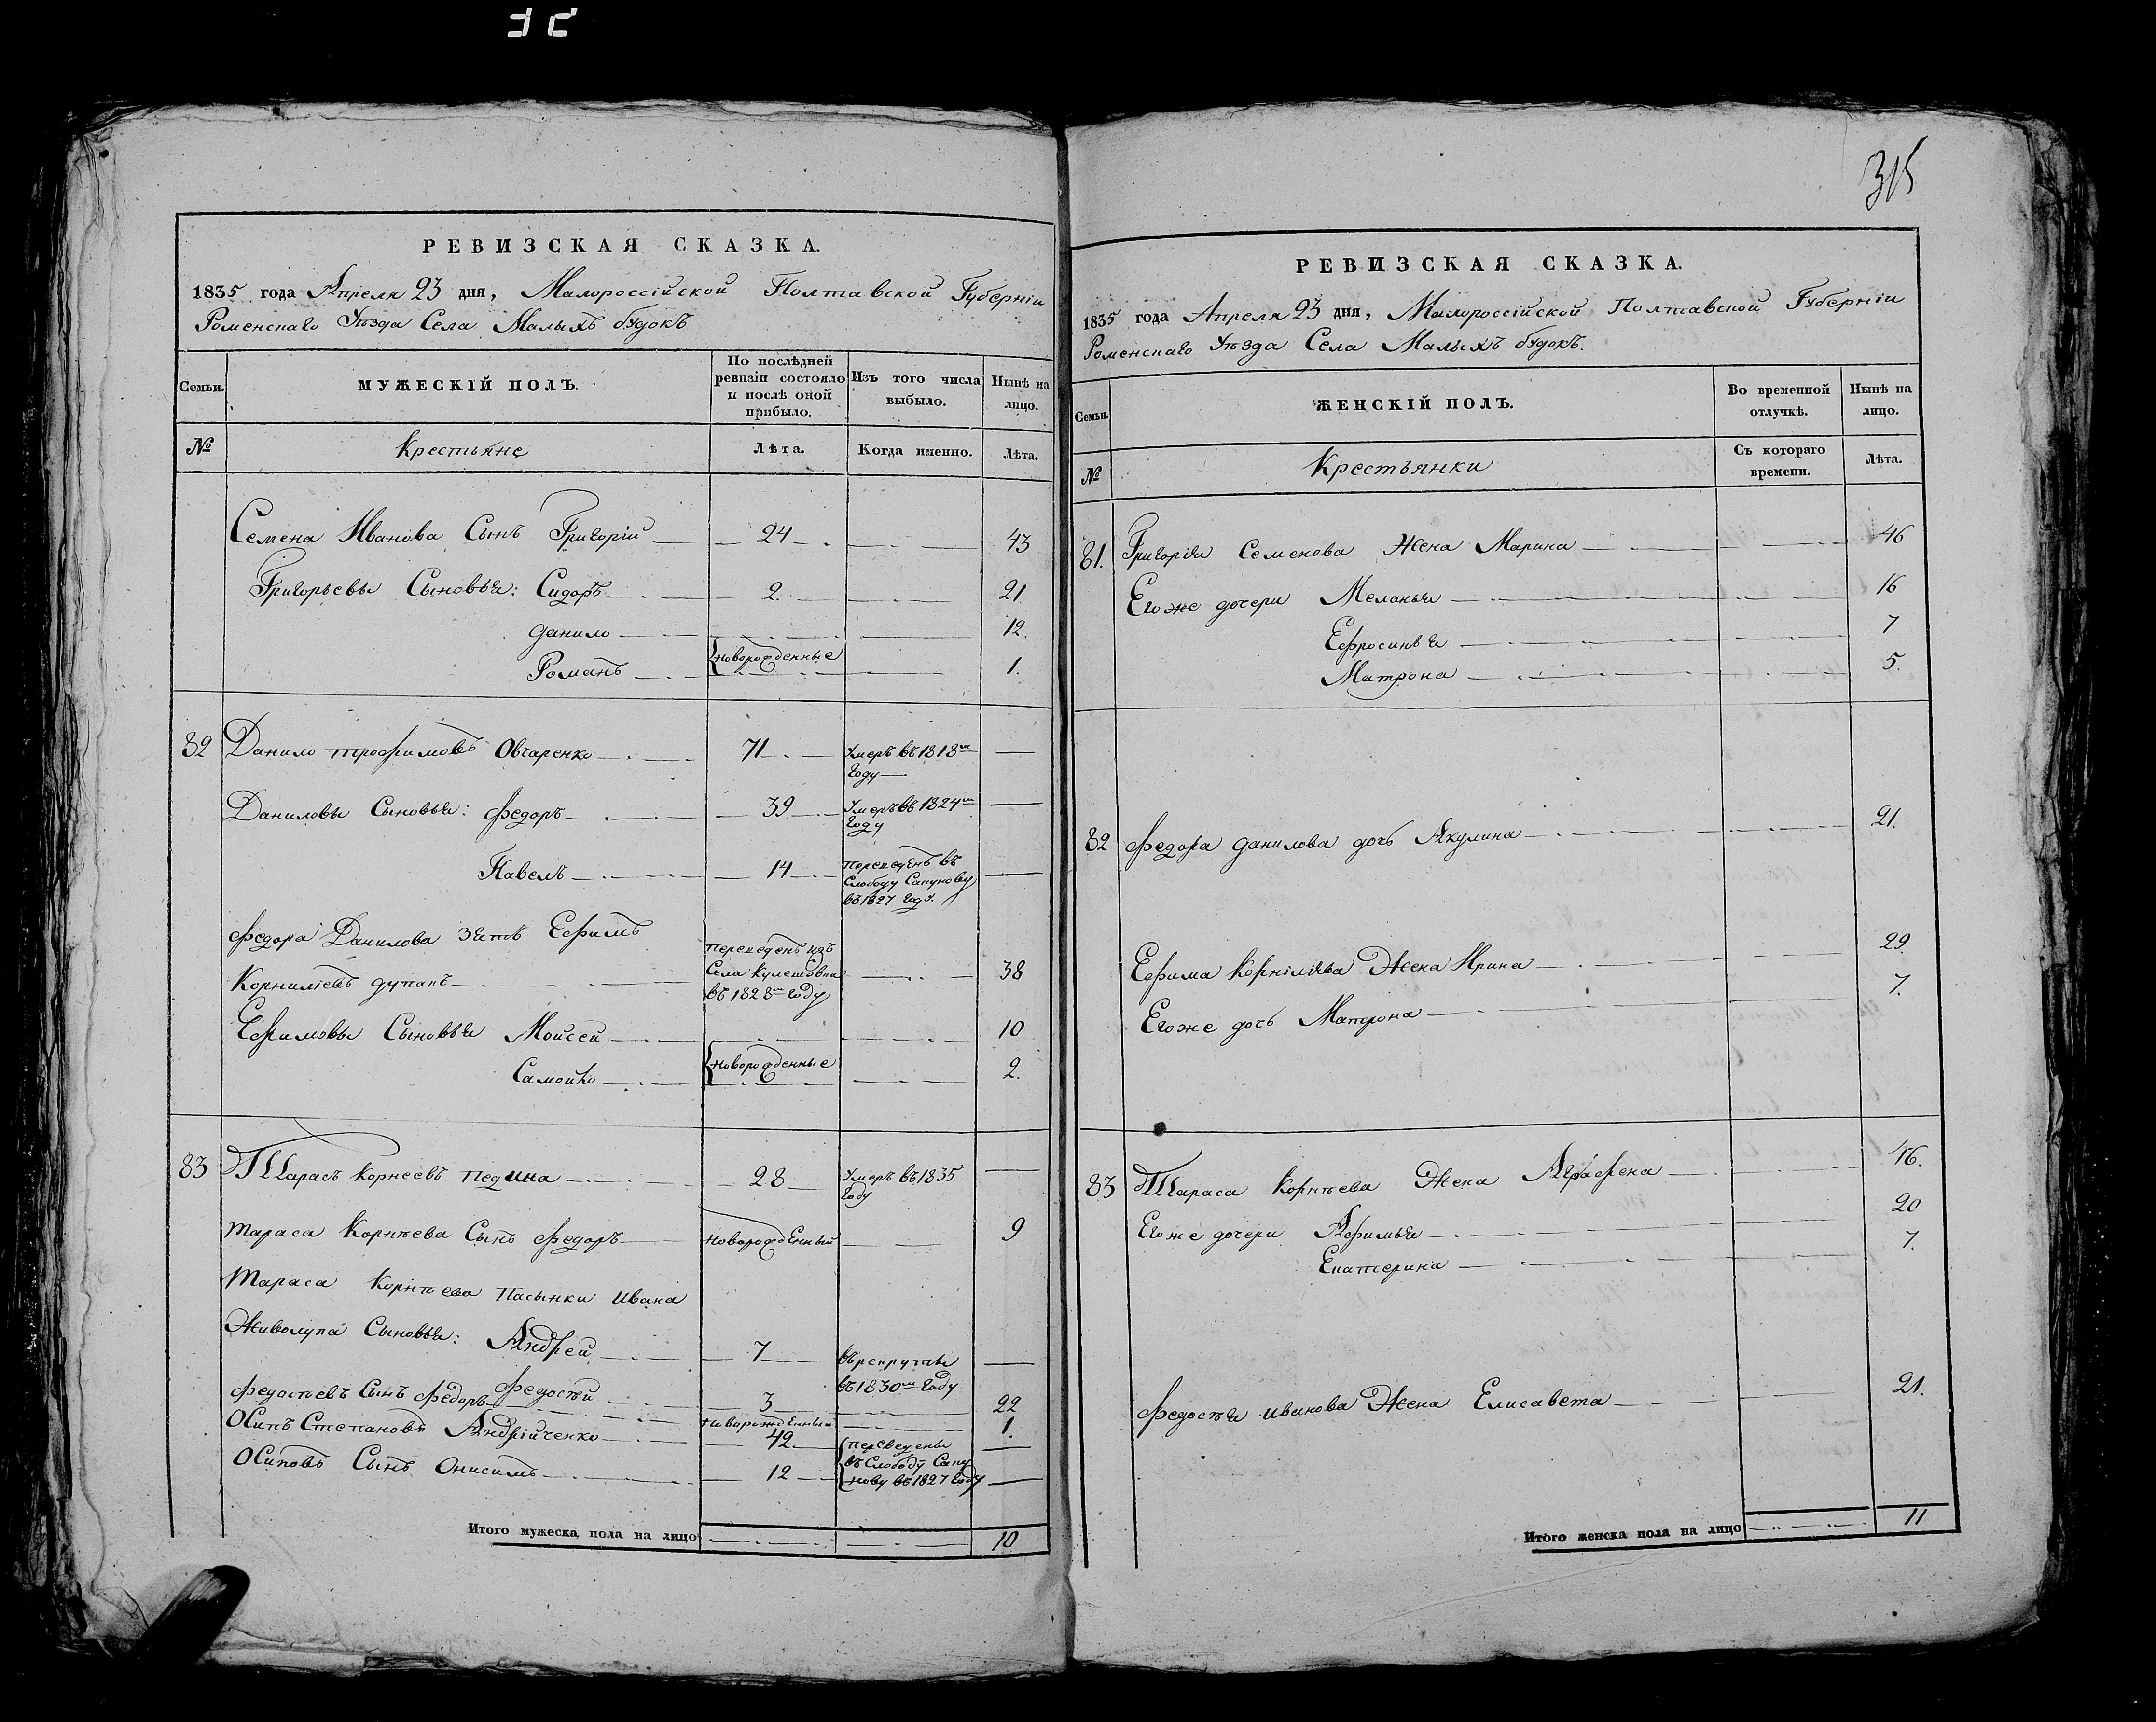 315
РЕВИЗСКАЯ СКАЗКА.
1835 года Апреля 23 дня, Малороссійской Полтавской Губерніи
Роменскаго Уѣзда Села Малыхъ будокъ
Семьи.
МУЖЕСКІЙ ПОЛЪ.
По послѣдней ревизіи состояло и послѣ оной прибыло.
Изъ того числа выбыло.
Нынѣ на лицо.
№ Крестьяне Лѣта. Когда именно. Лѣта.
Семена Иванова Сынъ Григорій 24 43
Григорьевы Сыновья: Сидоръ 2 21
Данило 12.
новорожденные
Романъ 1.
82 Данило Трофимовъ Овчаренко 71 Умеръ въ 1818м
году
Даниловы Сыновья: Федоръ 39 Умеръ въ 1824м
году
Павелъ 14 переведенъ въ
Слободу Сапунову
въ 1827 году.
Федора Данилова зять Ефимъ
Корніліевъ
переведенъ изъ
Села Кулешовки
въ 1828м году
38
Ефимовы Сыновья Мойсей 10
новорожденные
Самойло 2.
83 Тарасъ Корнеевъ Педина 28 Умеръ въ 1835
году
Тараса Корнѣева Сынъ Федоръ новорожденный 9
Тараса Корнѣева Пасынки Ивана
Живолупа Сыновья: Андрей 7 въ рекруты
въ 1830м году
Федосѣй 3 22
Федосѣевъ Сынъ Федоръ новорожденный 1.
Осипъ Степановъ Андрійченко 42 переведены
въ Слободу Сапу
нову въ 1827 году
Осиповъ Сынъ Онисимъ 12
Итого мужеска пола на лицо 10
РЕВИЗСКАЯ СКАЗКА.
1835 года Апреля 23 дня, Малороссійской Полтавской Губерніи
Роменскаго Уѣзда Села Малыхъ будокъ.
Семьи.
ЖЕНСКІЙ ПОЛЪ.
Во временной отлучкѣ.
Нынѣ на лицо.
№ Крестьянки Съ котораго времени. Лѣта.
81. Григорія Семенова Жена Марина 46
Его же дочери Меланья 16
Ефросинья 7
Матрона 5.
82 Федора Данилова дочь Акулина 21.
Ефима Корніліева Жена Ирина 29
Его же дочь Матрона 7.
83 Тараса Корнѣева Жена Аграфена 46.
Его же дочери Афимья 20
Екатерина 7.
Федосѣя Иванова Жена Елисавета 21.
Итого женска пола на лицо 11